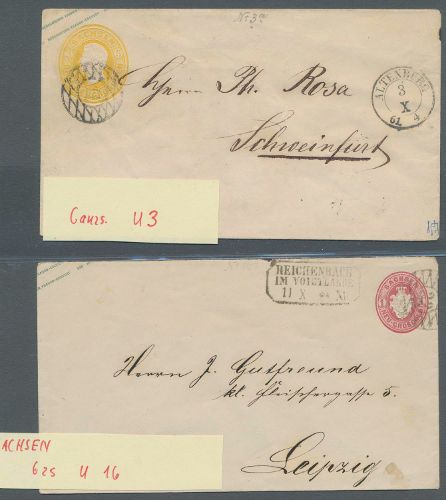 No 3a
Herrn Ph. Rosa
Schweinfurt
ALTENBURG
3
X
61 4
Ganzs. U3
REICHENBACH
IM VOIGTLANDE
11 X XI
SACHSEN
Herrn J. Gutfreund
kl. Fleischergasse 5.
Leipzig
ACHSEN
Gzs U 16